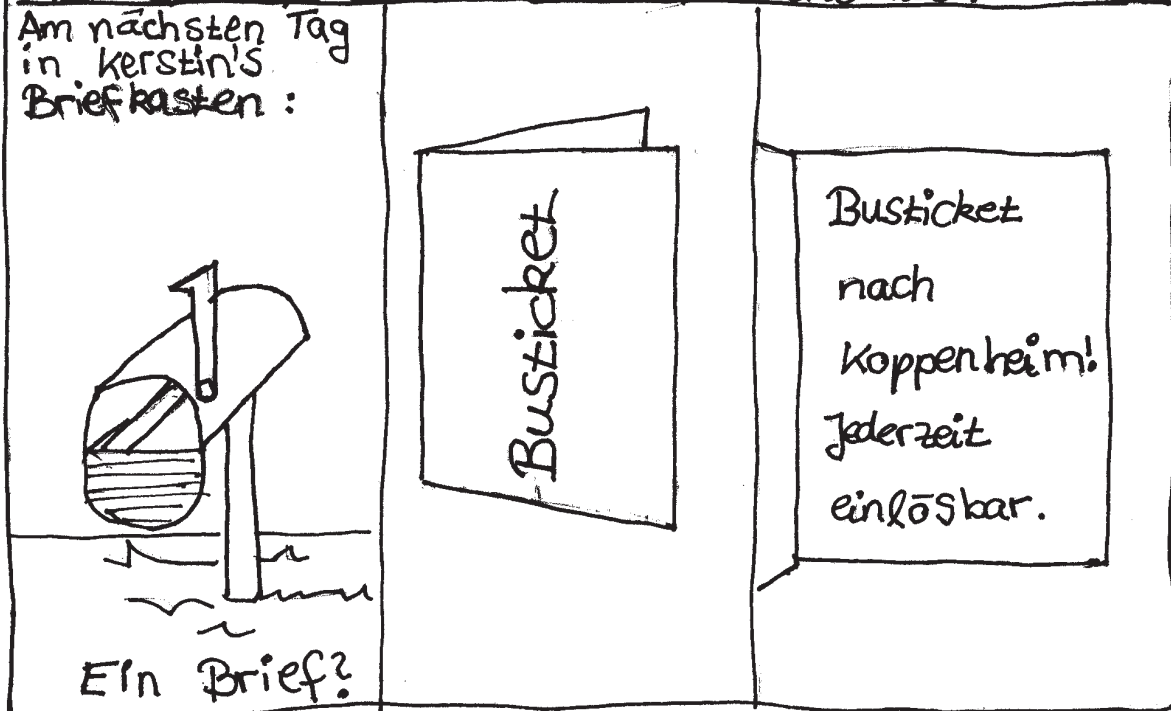 Am nächsten Tag
in Kerstin's
Briefkasten :
Ein Brief?
Busticket
Busticket
nach
Koppenheim!
Jederzeit
einlösbar.